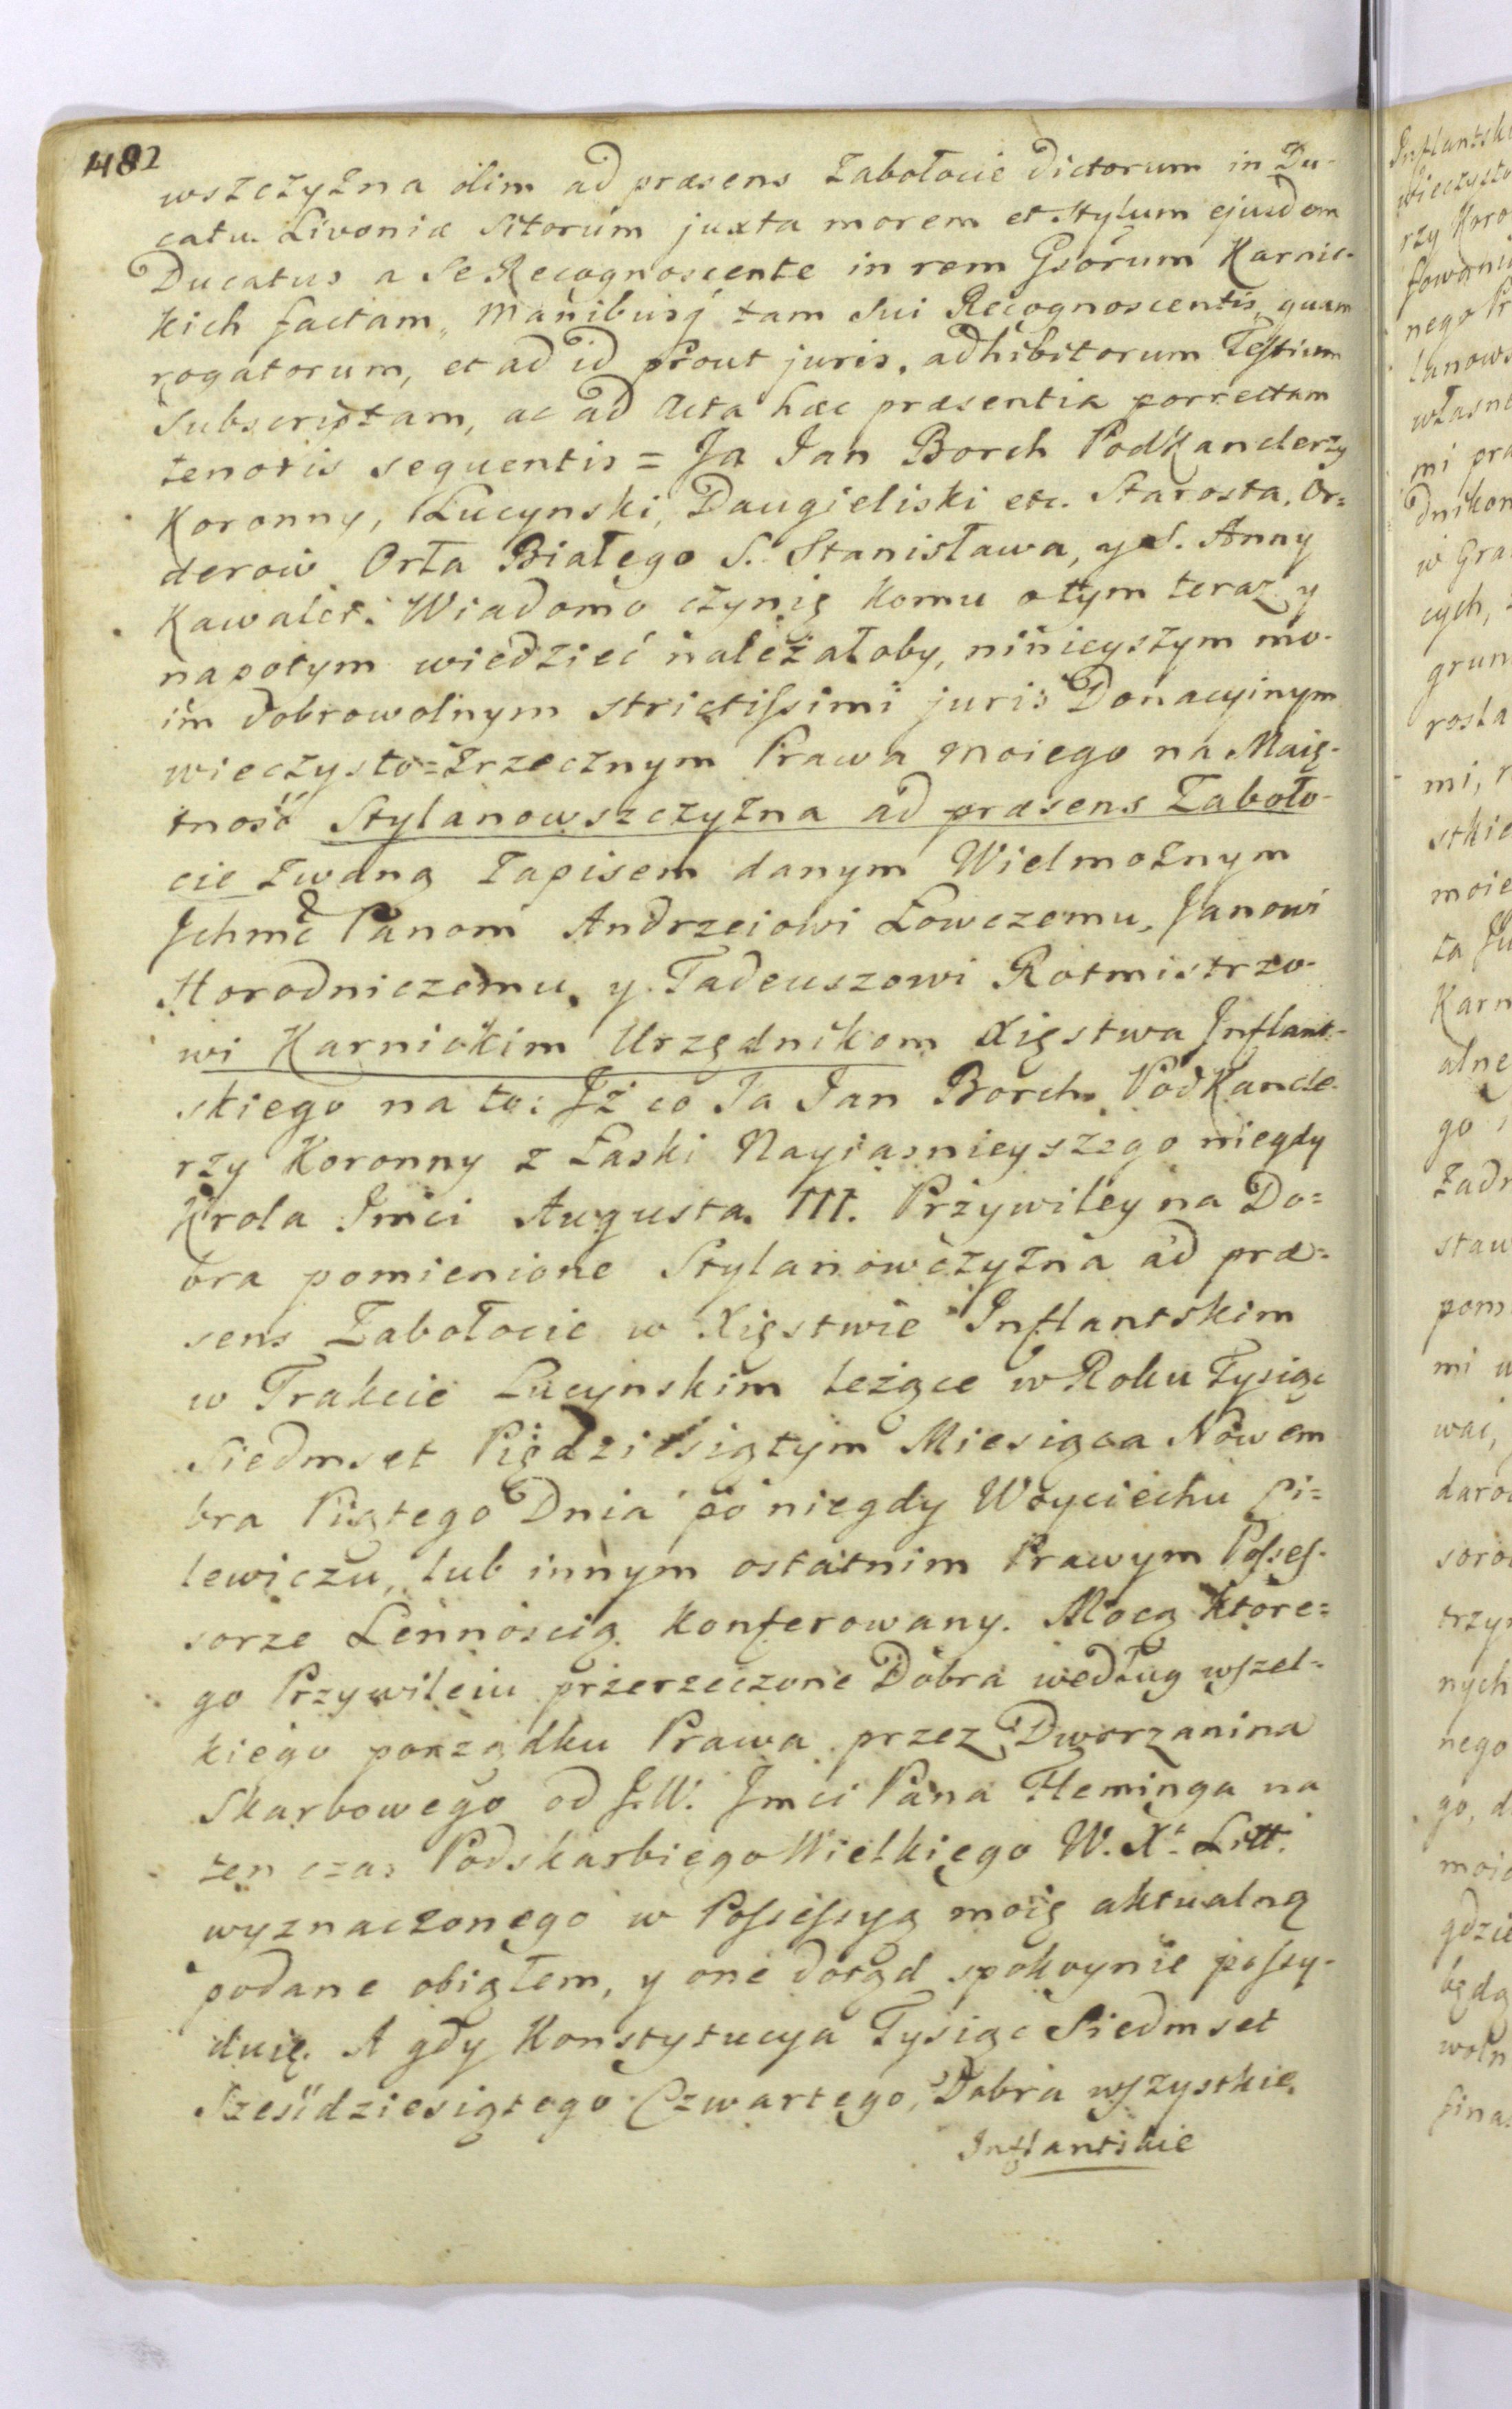 482
wszczyzna olim ad præsens Zabołocie Dictorum in Du-
catu Livoniæ Sitorum juxta morem et Stylum ejusdem
Ducatus a Se Recognoscente in rem Gsorum Karnic-
kich factam, Manibusq tam Sui Recognoscentis, quam
rogatorum, et ad id prout juris, adhibitorum Testium
Subscriptam, ac ad Acta hæc præsentia porrectam
tenoris sequentis = Ja Jan Borch PodKanclerzy
Koronny, Lucynski, Daugieliski etc. Starosta, Or=
derow Orła Białego S. Stanisława, y S. Anny
Kawaler. Wiadomo czynię komu o tym teraz y
napotym wiedzieć należałoby, ninieyszym mo-
im dobrowolnym strictissimi juris Donacyinym
wieczysto=zrzecznym Prawa moiego na Maię-
tność Stylanowszczyzna ad præsens Zaboło-
cie zwaną Zapisem danym Wielmożnym
Ichmć Panom Andrzeiowi Łowczemu, Janowi
Horodniczemu, y Tadeuszowi Rotmistrzo-
wi Karnickim Urzędnikom Xięstwa Inflant-
skiego na to: Iż co Ja Jan Borch PodKancle-
rzy Koronny z Łaski Nayiasnieyszego niegdy
Krola Imci Augusta III. Przywiley na Do=
bra pomienione Stylanowczyzna ad præ=
sens Zabołocie w Xięstwie Inflantskim
w Trakcie Lucynskim leżące w Roku Tysiąc
Siedmset Pięćdziesiątym Miesiąca Nowem
bra Piątego Dnia po niegdy Woyciechu Pi=
lewiczu, lub innym ostatnim Prawym Posses-
sorze Lennoscią konferowany. Mocą ktore=
go Przywileiu przerzeczone Dobra według wszel=
kiego porządku Prawa przez Dworzanina
Skarbowego od J.W. Imci Pana Fleminga na
ten czas Podskarbiego Wielkiego W. Xa. Litt.
wyznaczonego w Possessyą moię aktualną
podane obiąłem, y one dotąd spokoynie possy-
duię. A gdy Konstytucya Tysiąc Siedmset
Sześćdziesiątego Czwartego, Dobra wszystkie
Inflantskie